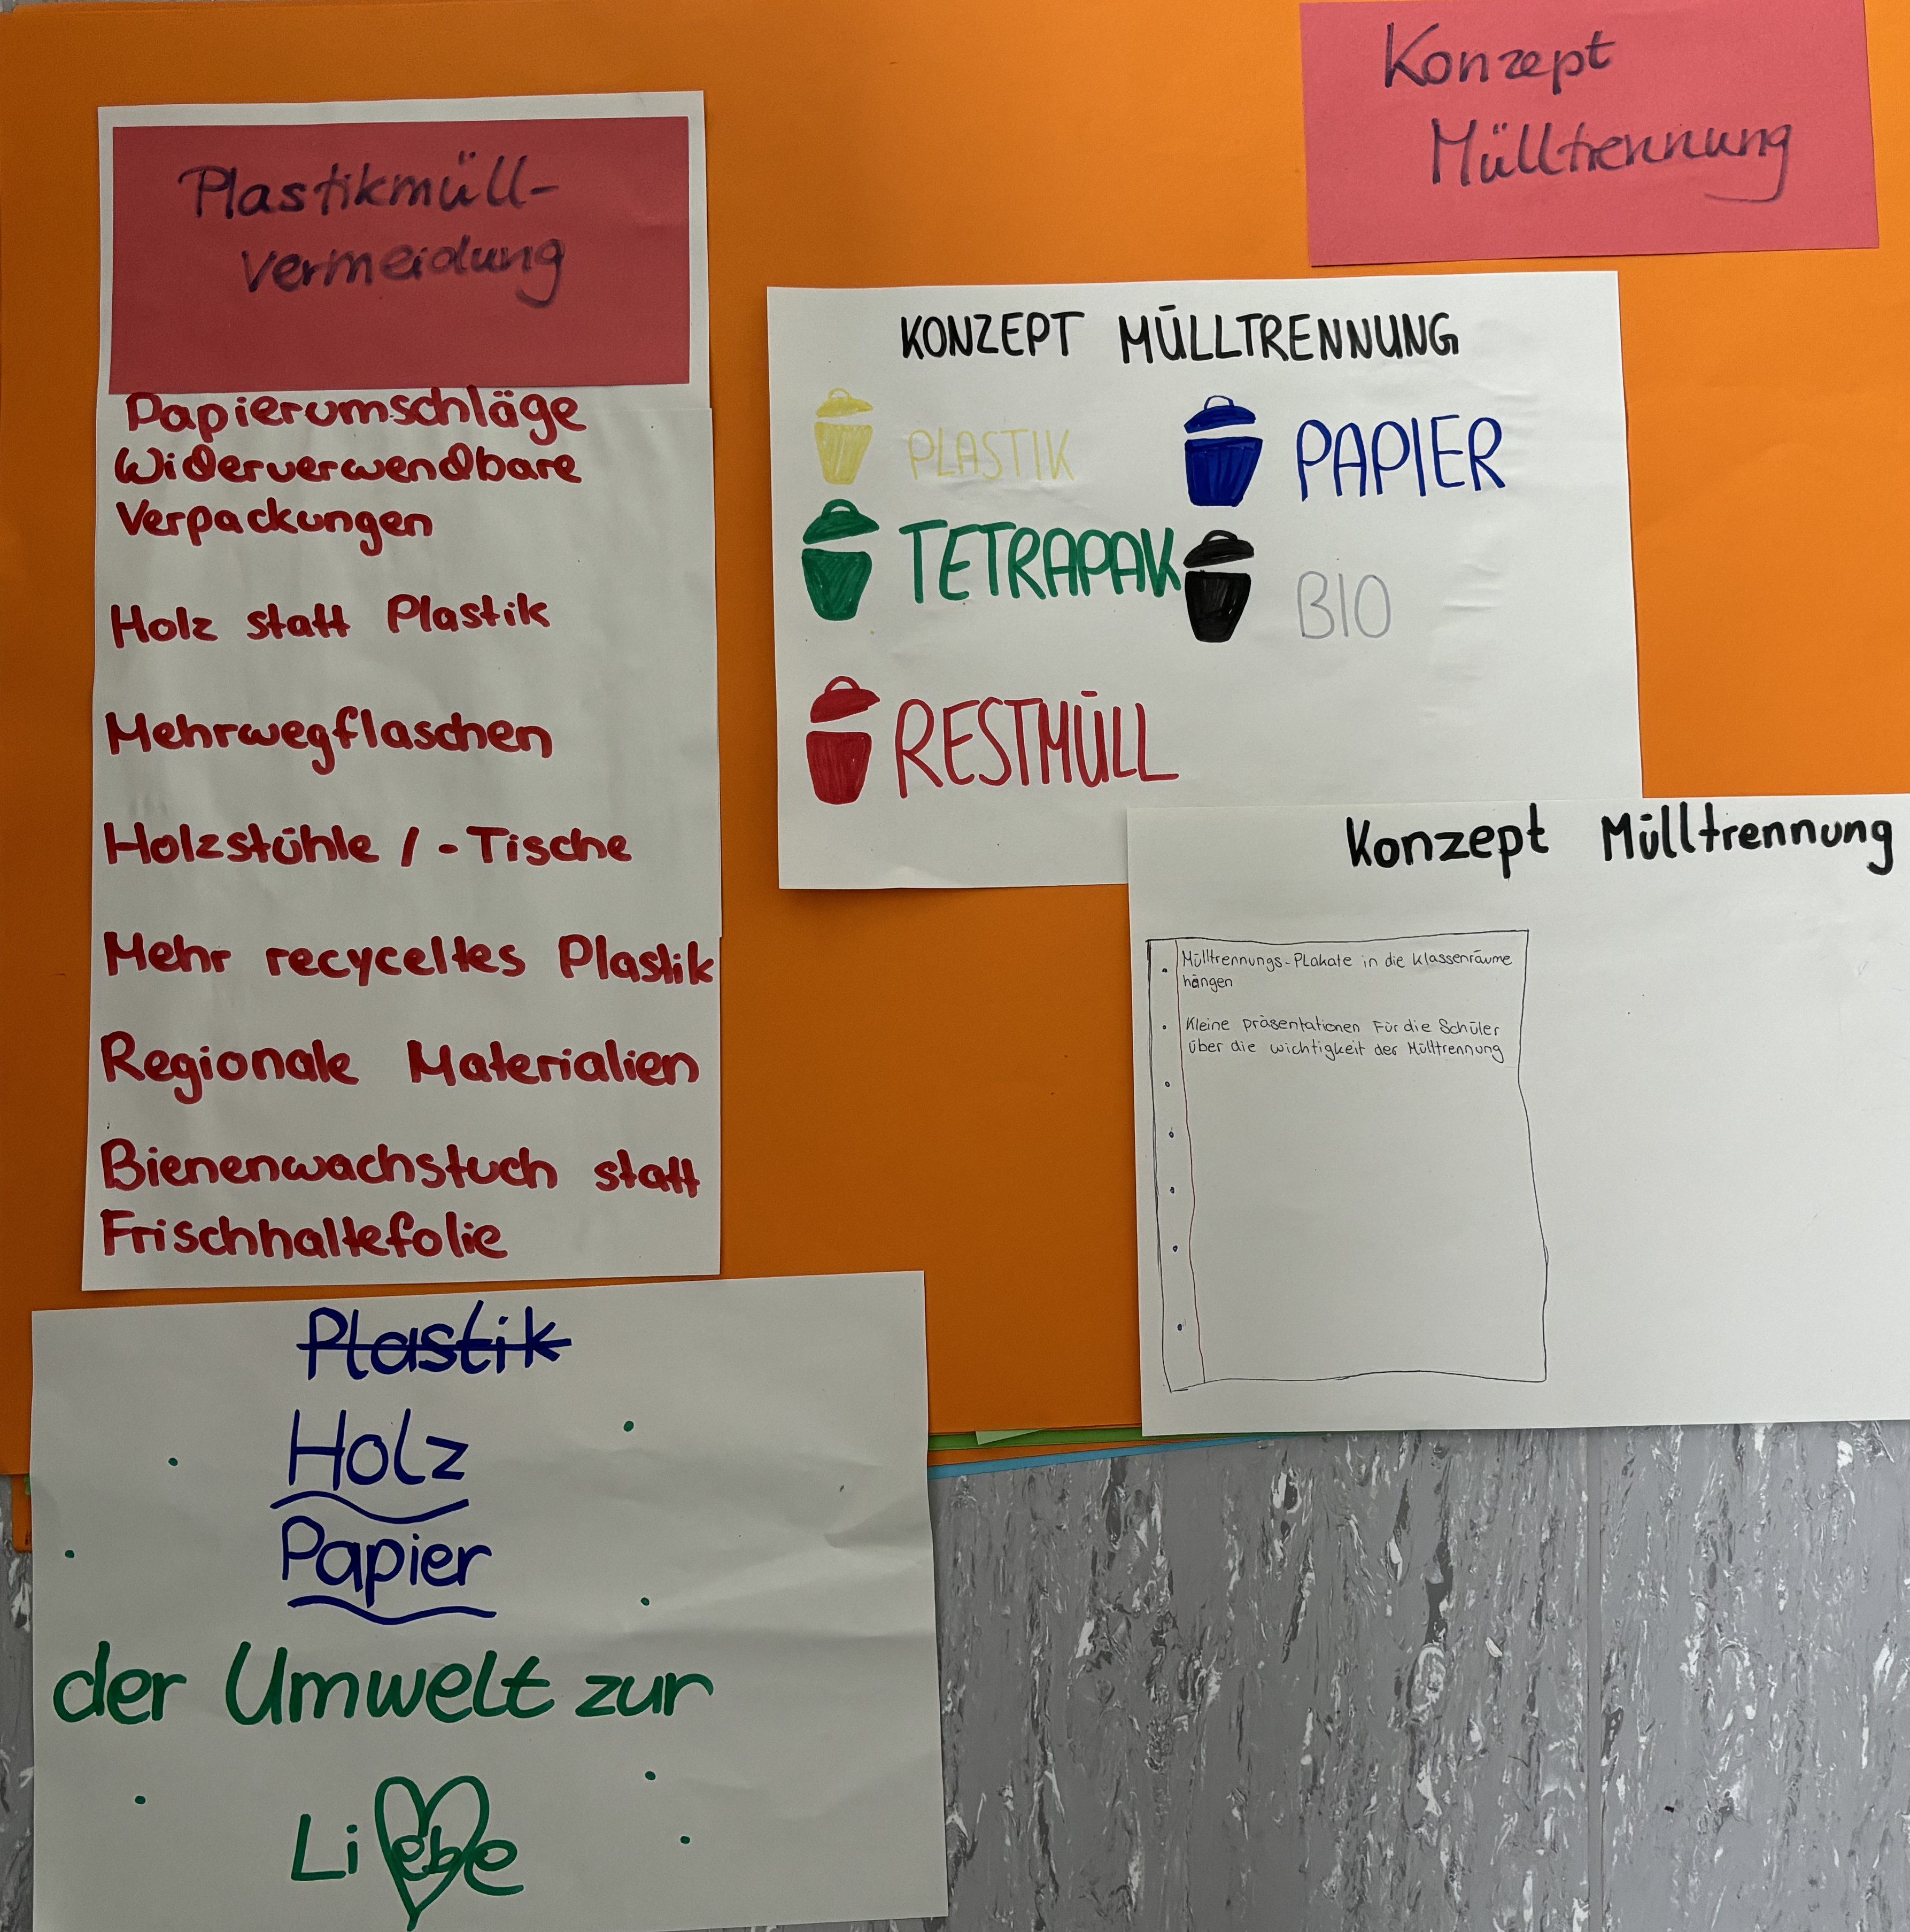 Plastikmüll-
vermeidung
Papierumschläge
Widerverwendbare
Verpackungen
Holz statt Plastik
Mehrwegflaschen
Holzstühle / - Tische
Mehr recyceltes Plastik
Regionale Materialien
Bienenwachstuch statt
Frischhaltefolie
Plastik
Holz
Papier
der Umwelt zur
Liebe
Konzept
Mülltrennung
KONZEPT MÜLLTRENNUNG
PLASTIK
PAPIER
TETRAPAK
BIO
RESTMÜLL
Konzept Mülltrennung
Mülltrennungs-Plakate in die Klassenräume
hängen
Kleine präsentationen Für die Schüler
über die wichtigkeit der Mülltrennung